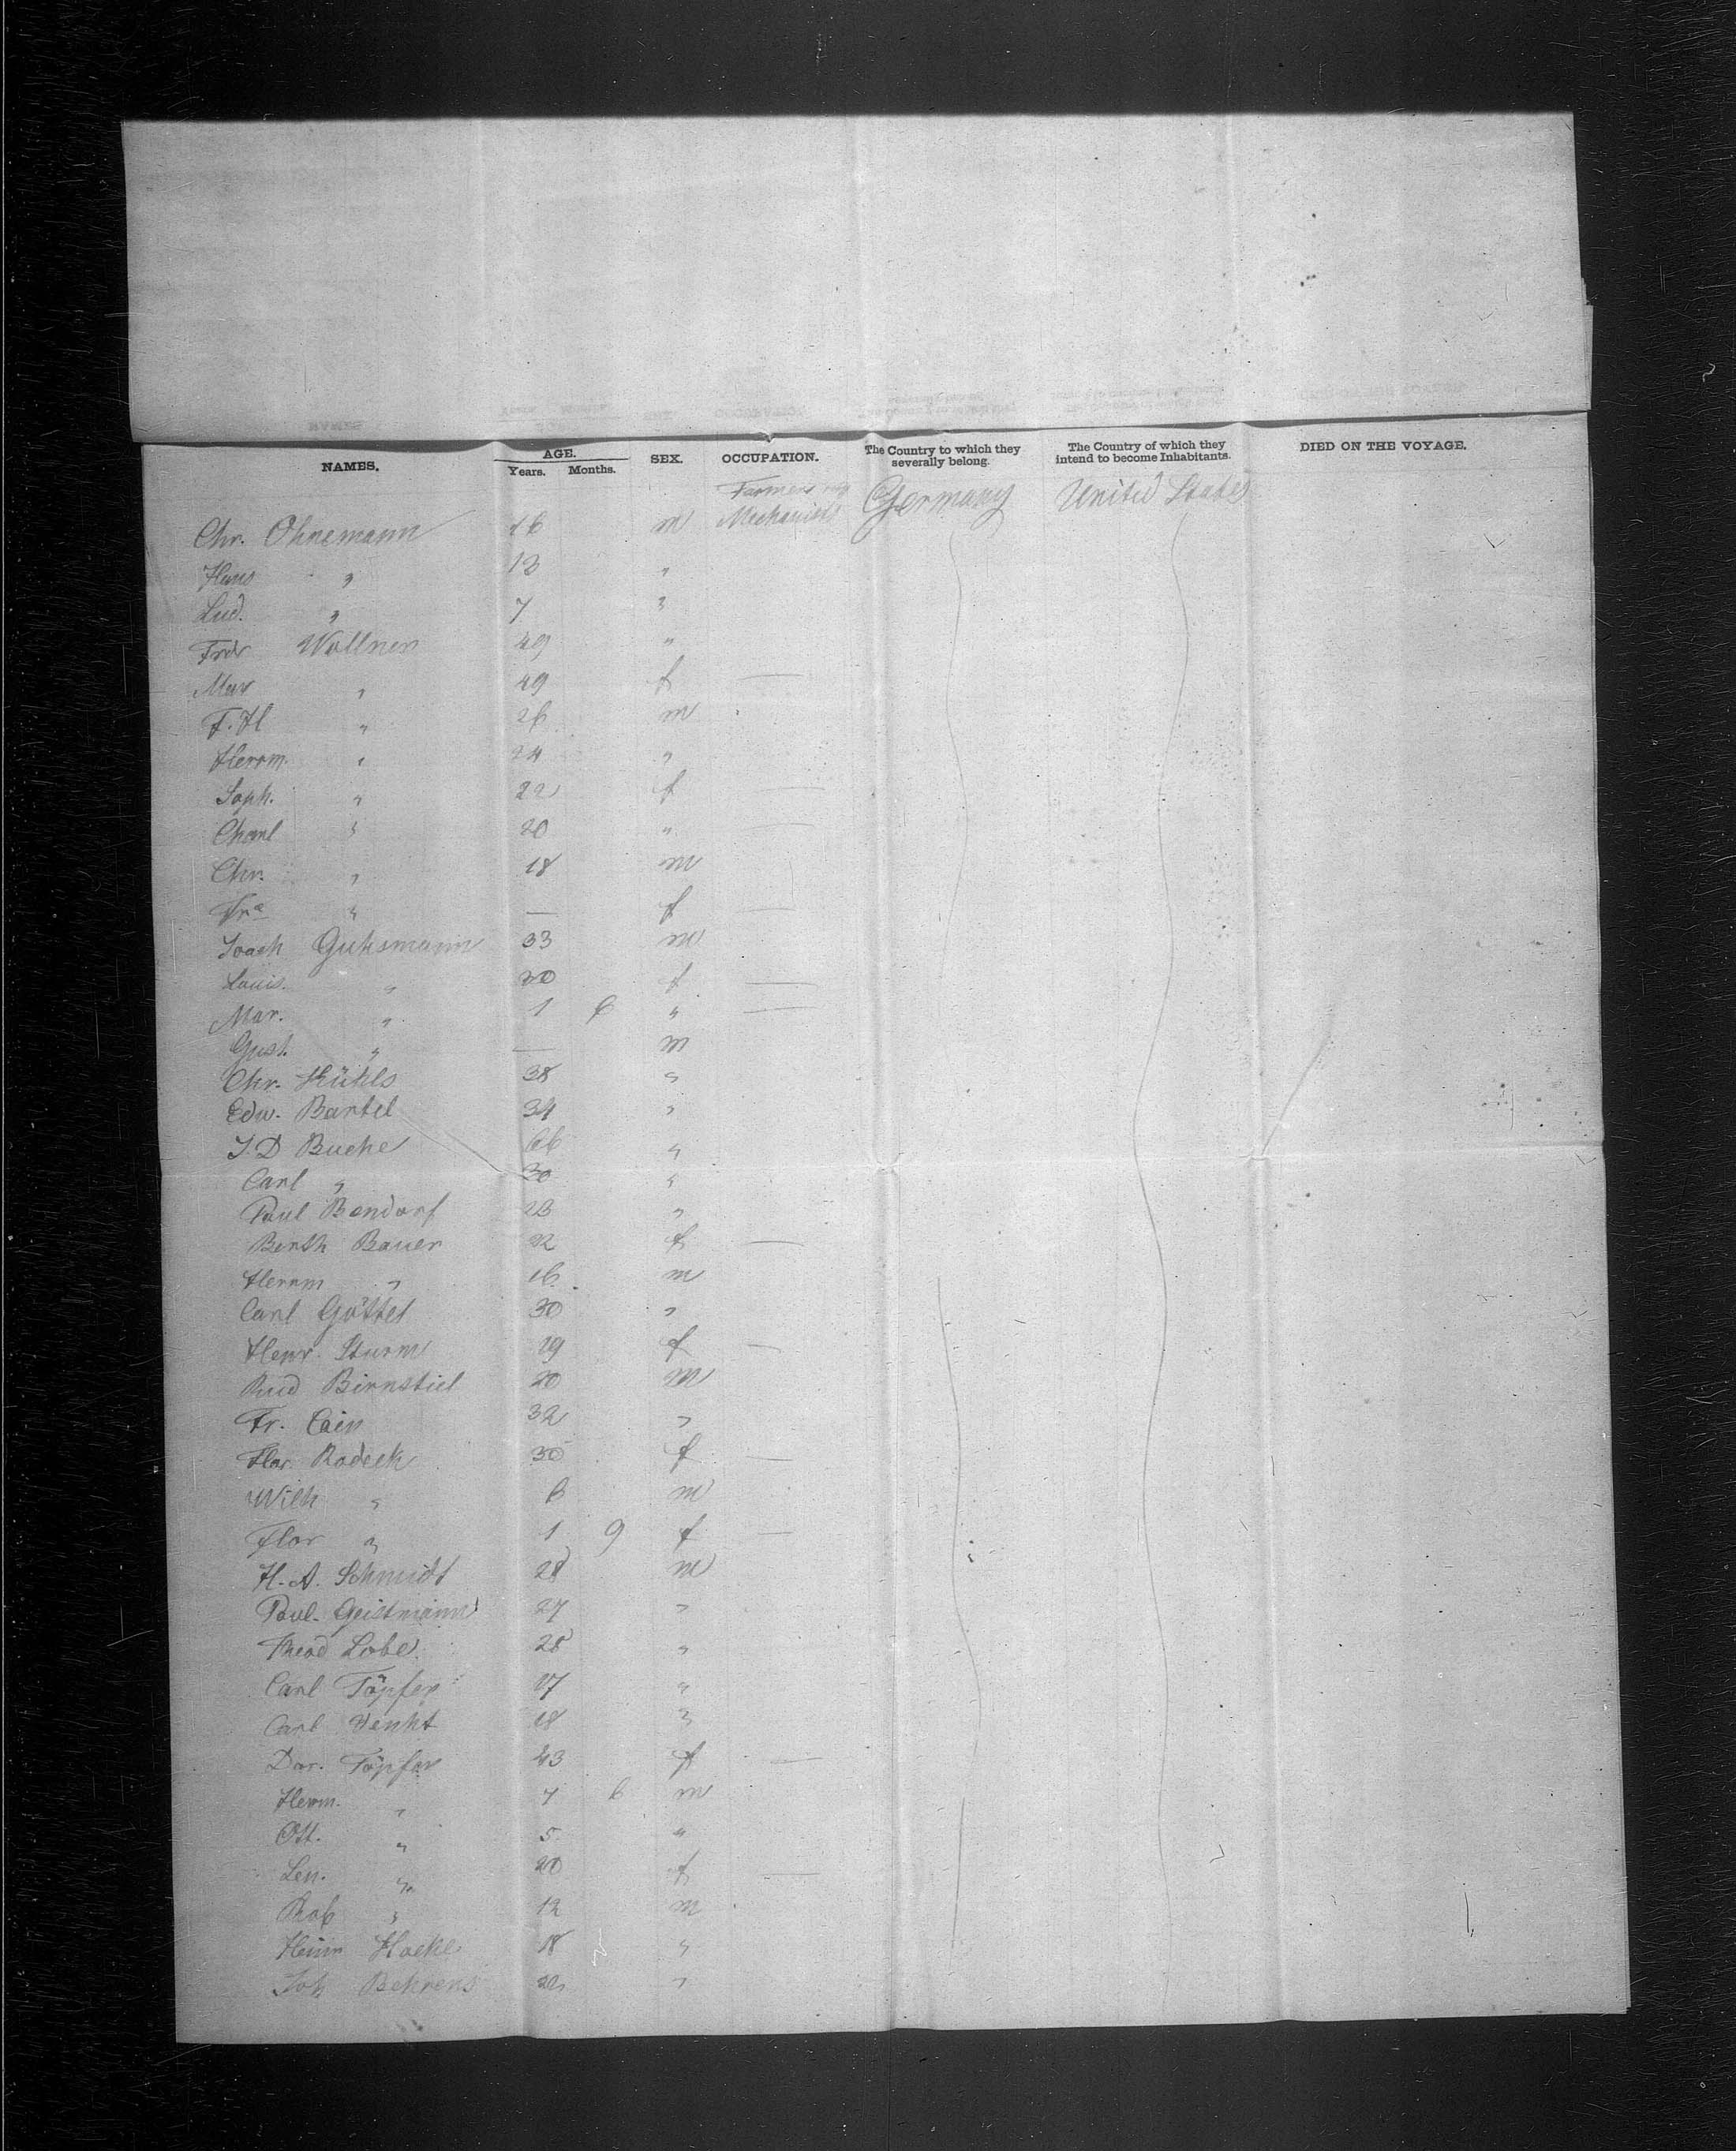 NAMES. AGE. Years. Months. SEX. OCCUPATION. The Country to which they severally belong. The Country of which they intend to become Inhabitants. DIED ON THE VOYAGE.
Farmers Mechanics Germany United States
Chr. Ohnemann 16 m
Hans " 13 "
Lud. " 7 "
Frdr Wollner 49 "
Mar " 49 f —
F. H " 26 m
Herrm. " 24 "
Soph. " 22 f —
Charl " 20 " —
Chr. " 18 m
Fra " — f —
Joach Guhsmann 33 m
Louis. " 30 f —
Mar. " 1 6 " —
Gust. " — m
Chr. Kühls 38 "
Edw. Bartel 34 "
J. D Buche 66 "
Carl " 30 "
Paul Bendorf 23 "
Berth Bauer 22 f —
Herrm " 16 m
Carl Göttel 30 "
Henr. Sturm 19 f —
Rud Birnstiel 20 m
Fr. Cain 32 "
Flor. Radeck 30 f —
Wilh " 6 m
Flor " 1 9 f —
H. A. Schmidt 28 m
Paul. Geistmann 27 "
Theod Lobe. 28 "
Carl Töpfer 17 "
Carl 18 "
Dor. Töpfer 43 f —
Herm. " 7 6 m
Ott. " 5 "
Len. " 20 f —
Rob " 12 m
Heinr Hocke 18 "
Joh Behrens 22 "